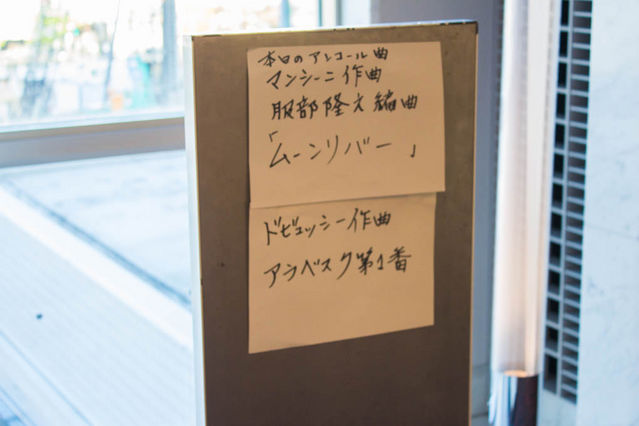 本日のアンコール曲
マンシーニ作曲
服部隆之編曲
「ムーンリバー」
ドビュッシー作曲
アラベスク第1番